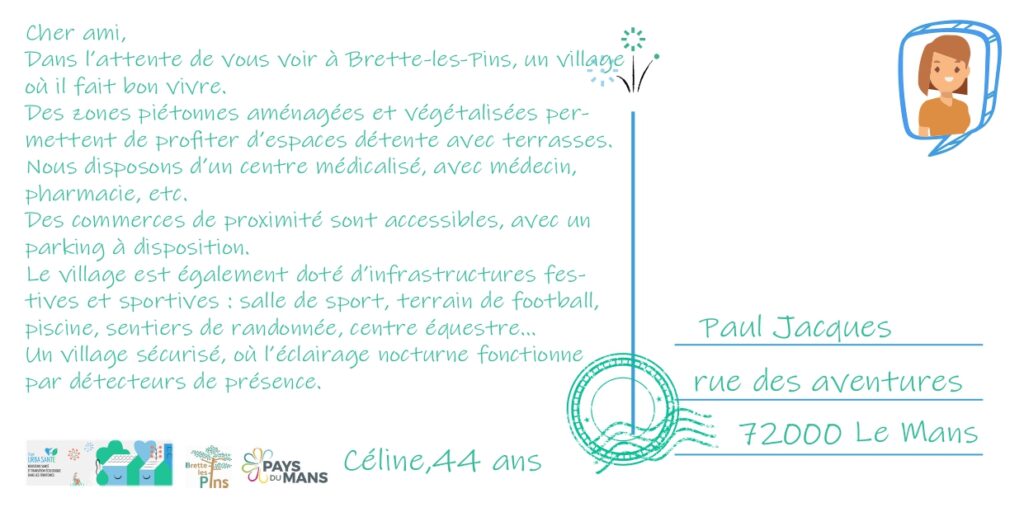 Cher ami,
Dans l'attente de vous voir à Brette-les-Pins, un village
où il fait bon vivre.
Des zones piétonnes aménagées et végétalisées per-
mettent de profiter d'espaces détente avec terrasses.
Nous disposons d'un centre médicalisé, avec médecin,
pharmacie, etc.
Des commerces de proximité sont accessibles, avec un
parking à disposition.
Le village est également doté d'infrastructures fes-
tives et sportives : salle de sport, terrain de football,
piscine, sentiers de randonnée, centre équestre...
Un village sécurisé, où l'éclairage nocturne fonctionne
par détecteurs de présence.
Paul Jacques
rue des aventures
72000 Le Mans
URBA SANTÉ
Brette-
les-
Pins
PAYS
DU MANS
Céline,44 ans